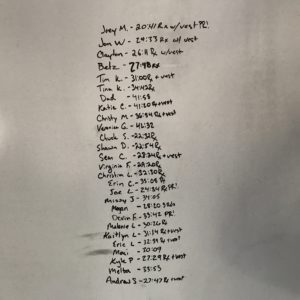 Joey M. - 20:41 Rx w/vest PR!
Jon W - 24:33 Rx w/ vest
Clayton - 26:11 Rx w/vest
Betz - 27:48 Rx
Tim K. - 31:00 Rx + vest
Tina K. - 34:42 Rx
Dad - 41:58
Katie C. - 41:20 Rx + vest
Christy M - 36:54 Rx + vest
Veronica G. - 41:32
Chuck S. - 22:32 Rx
Shawn D. - 22:54 Rx
Sean C. - 28:34 Rx + vest
Virginia F. - 29:20 Rx
Christina L - 32:30 Rx
Erin C. - 35:08 Rx
Joe L - 24:34 Rx PR!
Missy J - 34:05
Megan - 28:20
Devin E. - 33:42 PR!
Melanie L - 30:26 Rx
Kaitlyn L - 31:14 Rx + vest
Eric L - 32:59 Rx + vest
Maci - 30:09
Kyle P - 27:29 Rx + vest
Melba - 53:53
Andrew S - 27:47 Rx + vest